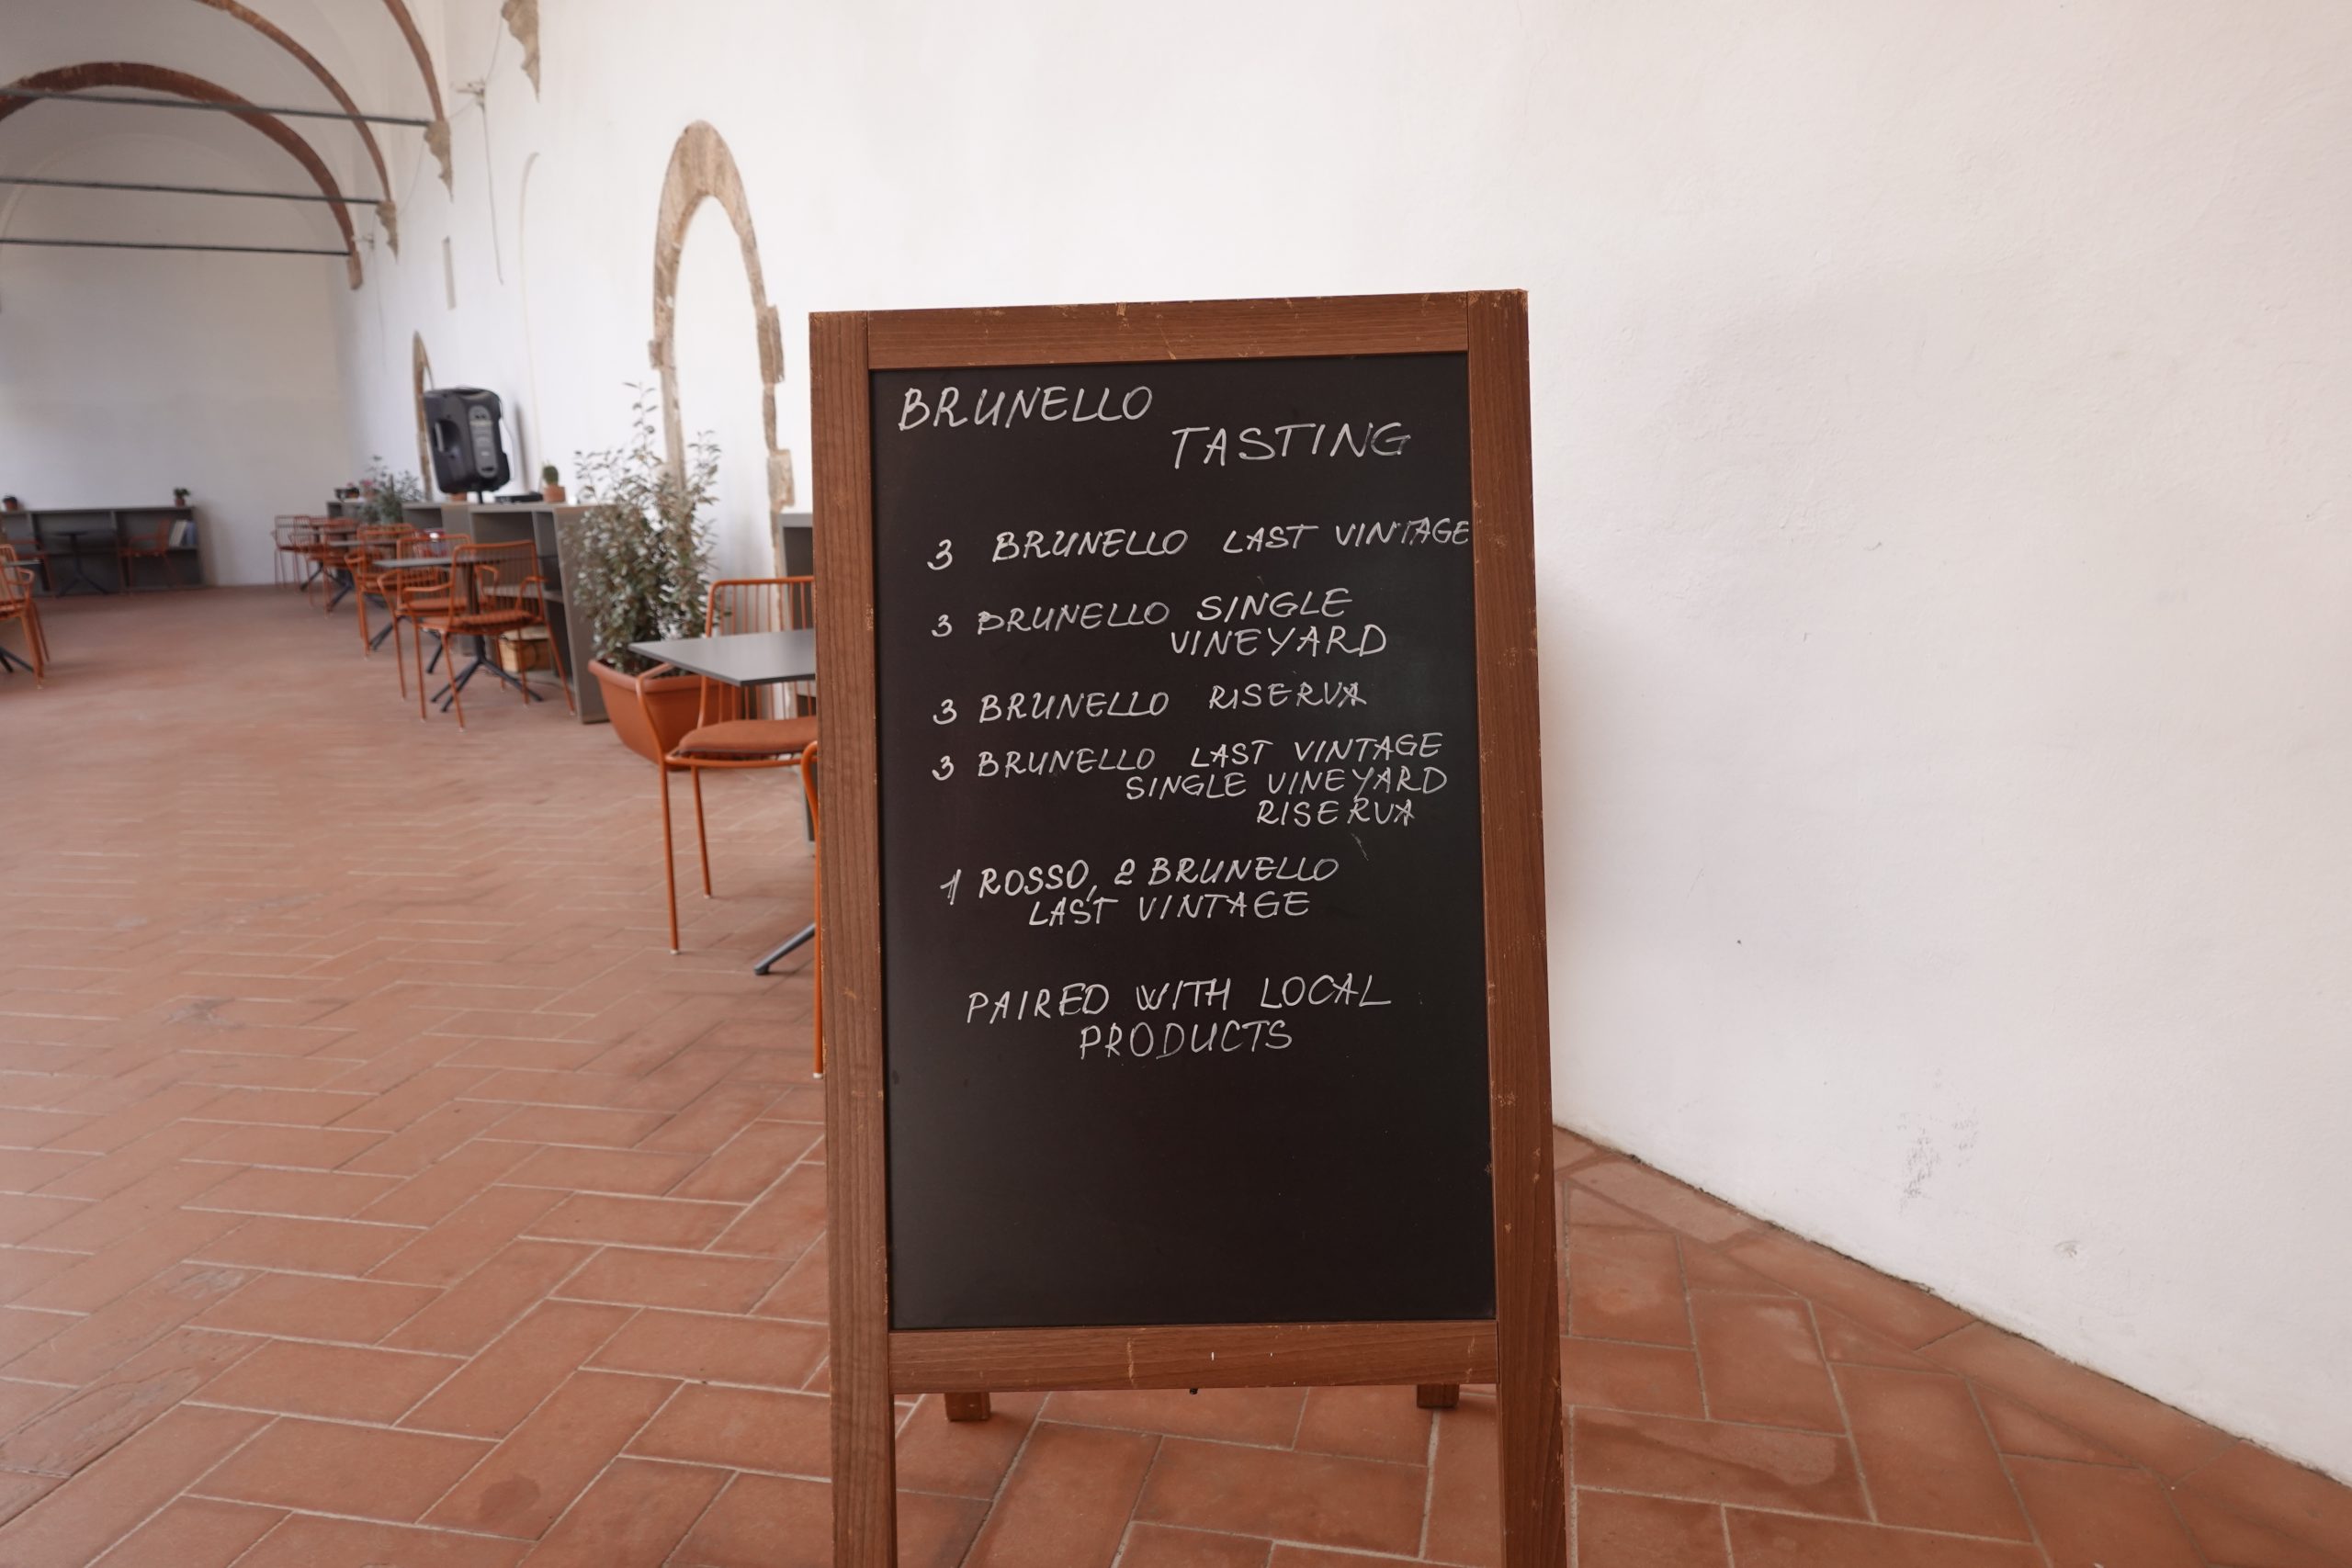 BRUNELLO
TASTING
3 BRUNELLO LAST VINTAGE
3 BRUNELLO SINGLE
VINEYARD
3 BRUNELLO RISERVA
3 BRUNELLO LAST VINTAGE
SINGLE VINEYARD
RISERVA
1 ROSSO, 2 BRUNELLO
LAST VINTAGE
PAIRED WITH LOCAL
PRODUCTS